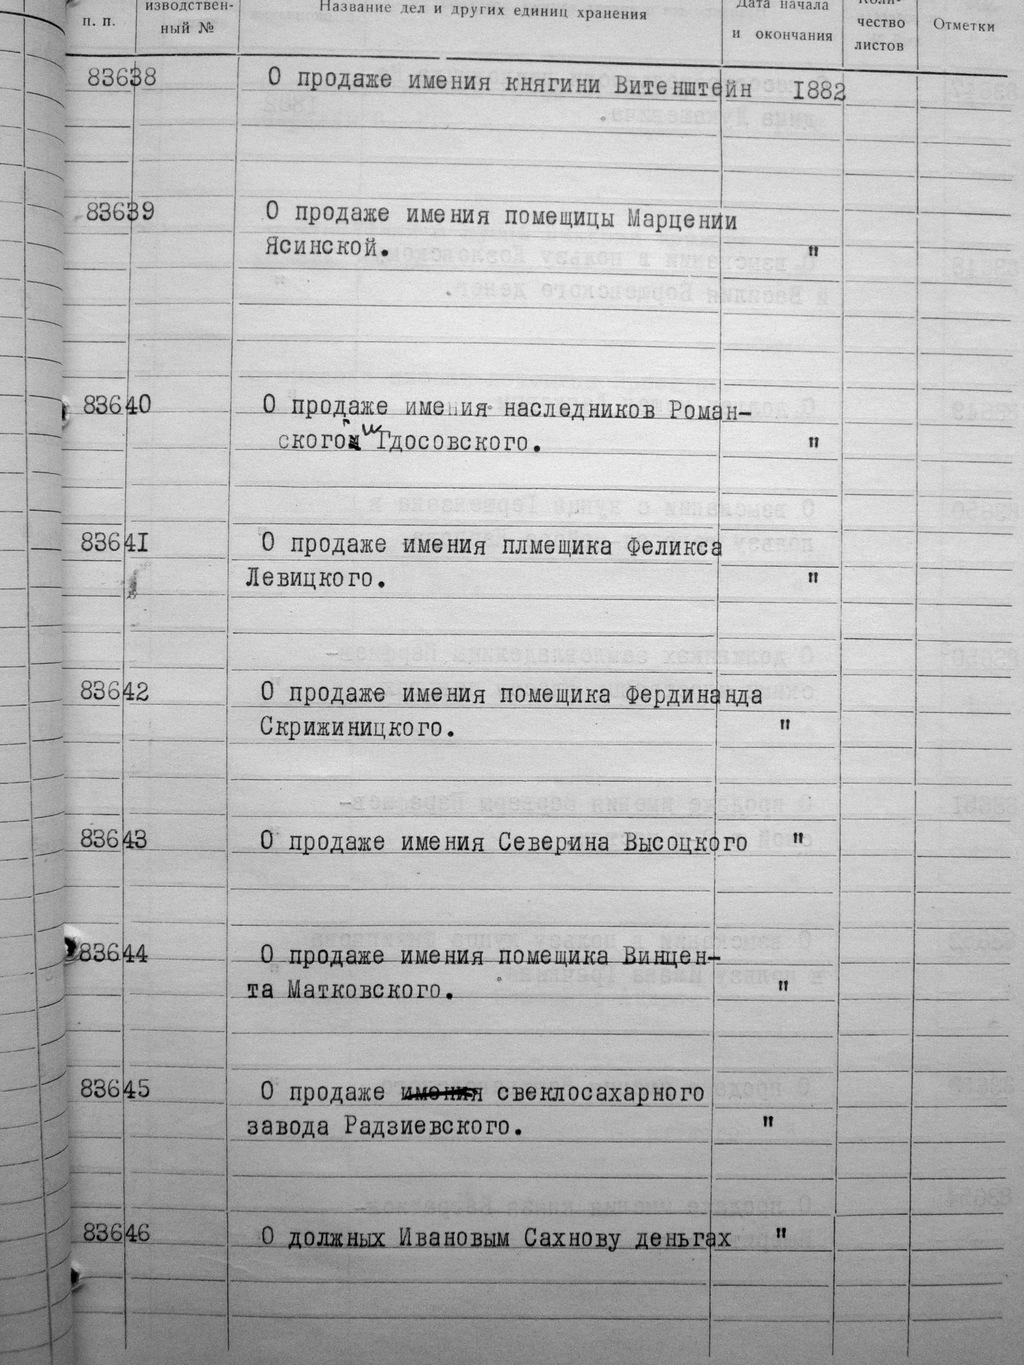 п. п.
изводствен-
ный №
Название дел и других единиц хранения
Дата начала
и окончания
Коли-
чество
листов
Отметки
83638 О продаже имения княгини Витенштейн 1882
83639 О продаже имения помещицы Марцении
Ясинской. "
83640 О продаже имения наследников Роман-
ского и Гдосовского. "
83641 О продаже имения плмещика Феликса
Левицкого. "
83642 О продаже имения помещика Фердинанда
Скрижиницкого. "
83643 О продаже имения Северина Высоцкого "
83644 О продаже имения помещика Винцен-
та Матковского. "
83645 О продаже имения свеклосахарного
завода Радзиевского. "
83646 О должных Ивановым Сахнову деньгах "